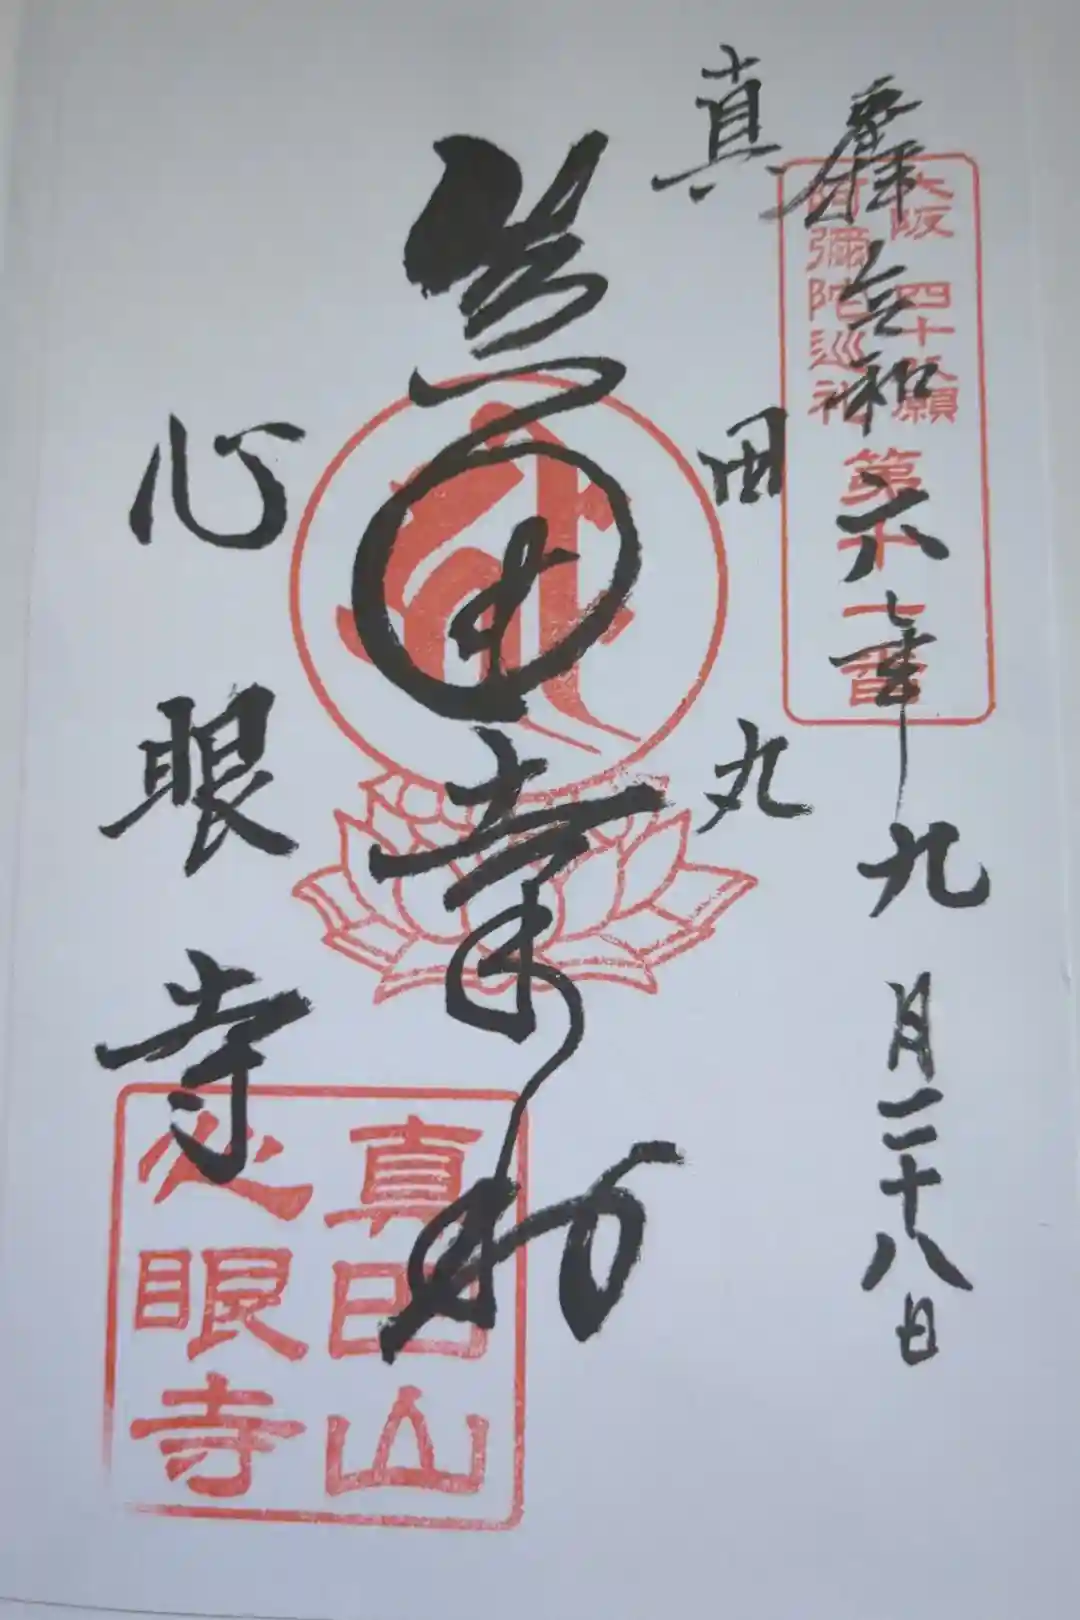 奉拝 令和六年九月二十八日
大阪 四十八願
阿彌陀巡礼
第十一番
真田丸
真田幸村
心眼寺
真田山
心眼寺